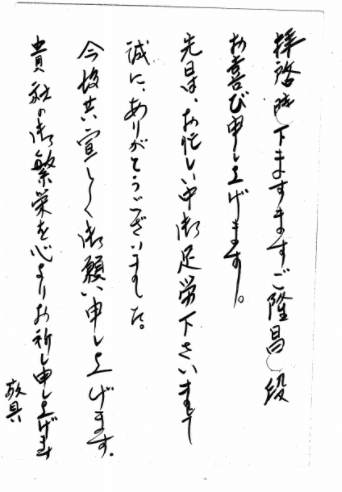 拝啓 時下ますますご隆昌の段
お喜び申し上げます。
先日は、お忙しい中御足労下さいまして
誠に、ありがとうございました。
今後共宜しく御願い申し上げます。
貴社の御繁栄を心よりお祈り申し上げます
敬具